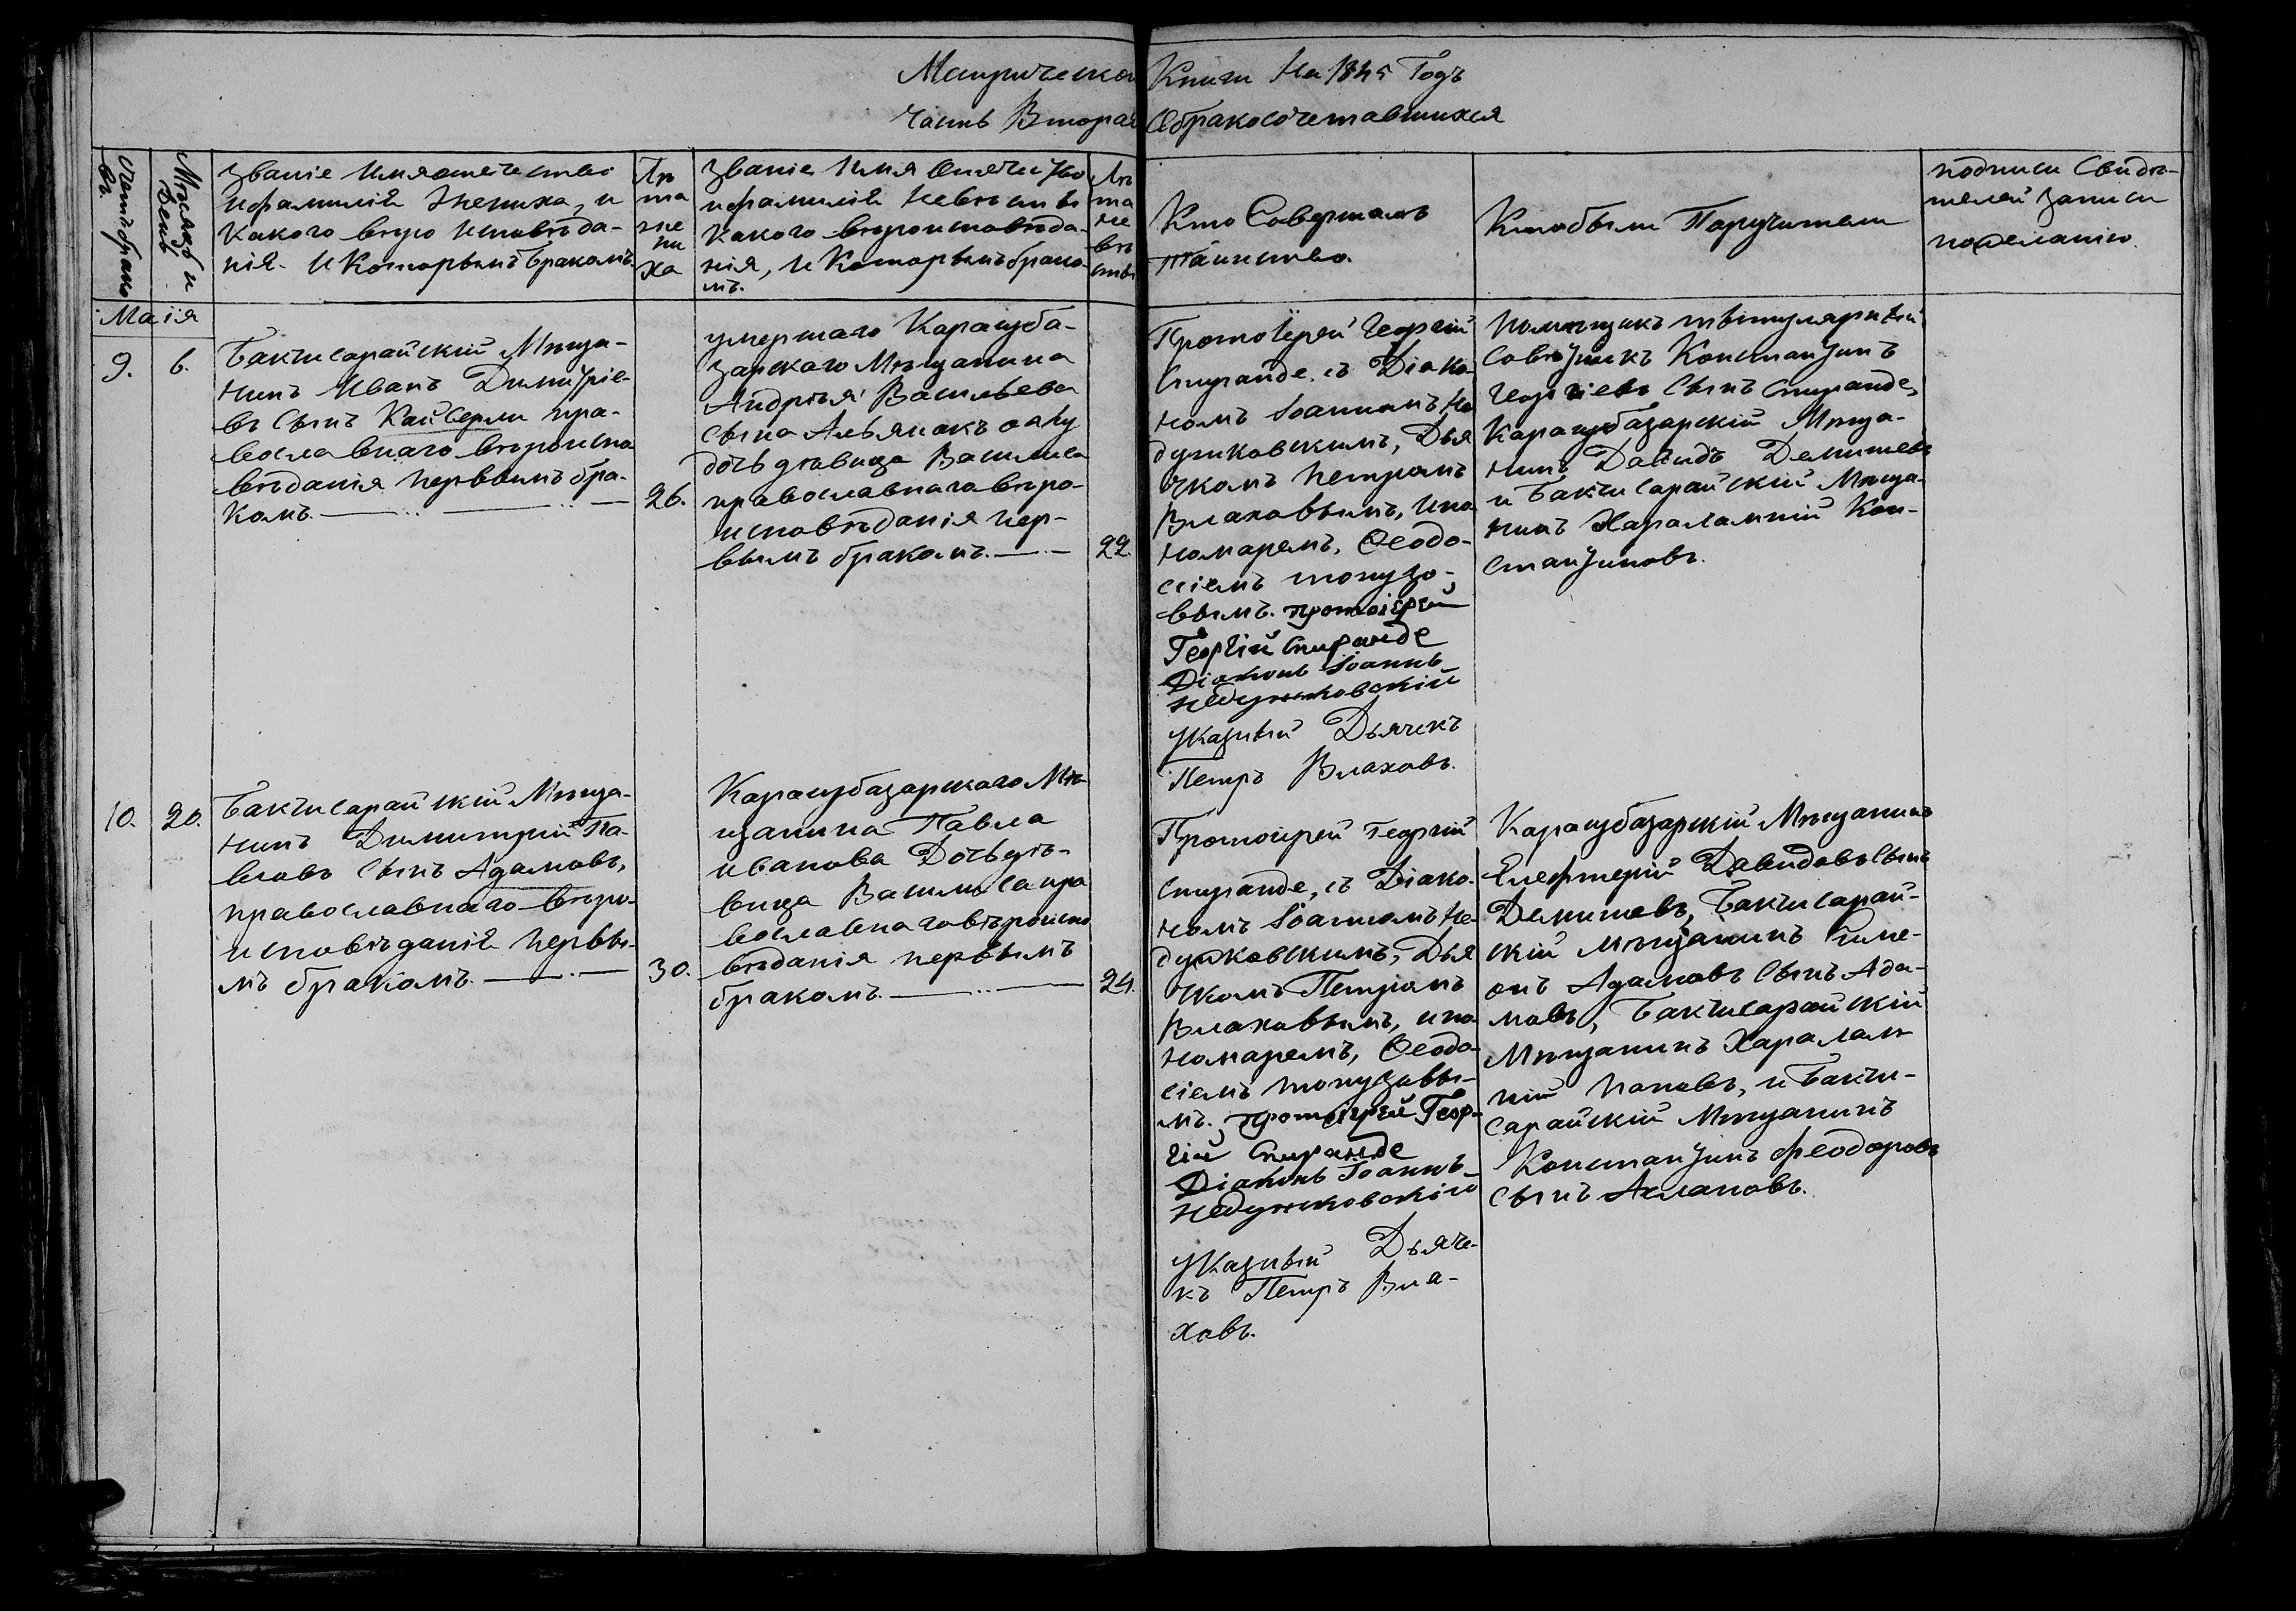 Метрической Книги На 1845 Годъ
Часть Вторая О бракосочетавшихся
Счетъ брако
въ.
Мѣсяцъ и
День
Званіе Имя отечество
и фамилія Жениха, и
какого вѣро исповѣда-
нія. И Которымъ бракомъ.
Лѣ
та
же
ни
ха
Званіе Имя отечество
и фамилія Невѣсты
какого вѣроисповѣда-
нія, и Которымъ брако-
мъ.
Лѣ
та
не
вѣ
сты
Кто Совершалъ
таинство.
Кто были Поручители
подписи Свидѣ-
телей Записи
по желанію.
Маія
9.
6.
Бакчисарайскій Мѣща-
нинъ Иванъ Димитріе-
въ Сынъ Кайсерли пра-
вославнаго вѣроиспо
вѣданія первымъ бра-
комъ.
26.
умершаго Карасуба-
зарскаго Мѣщанина
Андрѣя Васильева
сына
дочь дѣвица Василиса
православнаго вѣро-
исповѣданія пер-
вымъ бракомъ.
22.
Протоіерей Георгій
Спиранде, съ Діако-
номъ Іоанномъ Не
дужковскимъ, Дья
чкомъ Петромъ
Влаховымъ, и по
номаремъ, Ѳеодо-
сіемъ топузо-
вымъ. протоіерей
Георгій Спиранде
Діаконъ Іоаннъ
Недужковскій
Указный Дьячекъ
Петръ Влаховъ.
Помѣщикъ титулярный
Совѣтникъ Константинъ
Георгіевъ Сынъ Спиранде,
Карасубазарскій Мѣща-
нинъ Давидъ Демишевъ
и Бакчисарайскій Мѣща-
нинъ Харалампій Кон-
стантиновъ.
10.
20.
Бакчисарайскій Мѣща-
нинъ Димитрій Па-
вловъ Сынъ Адамовъ,
православнаго вѣро-
исповѣданія первы-
мъ бракомъ.
30.
Карасубазарскаго Мѣ-
щанина Павла
Иванова Дочь дѣ-
вица Василиса пра
вославнаго вѣроиспо
вѣданія первымъ
бракомъ.
24.
Протоіерей Георгій
Спиранде, съ Діако-
номъ Іоанномъ Не-
дужковскимъ, Дья
чкомъ Петромъ
Влаховымъ, и по
номаремъ, Ѳеодо-
сіемъ топузовы-
мъ. протоіерей Геор-
гій Спиранде
Діаконъ Іоаннъ
Недужковскій
Указный Дьяче-
къ Петръ Вла-
ховъ.
Карасубазарскій Мѣщанинъ
Елефтерій Давидовъ Сынъ
Демишевъ, Бакчисарай-
скій мѣщанинъ Симе-
онъ Адамовъ Сынъ Ада-
мовъ, Бакчисарайскій
Мѣщанинъ Харалам
пій Поповъ, и Бакчи-
сарайскій Мѣщанинъ
Константинъ Феодоровъ
Сынъ Аслановъ.